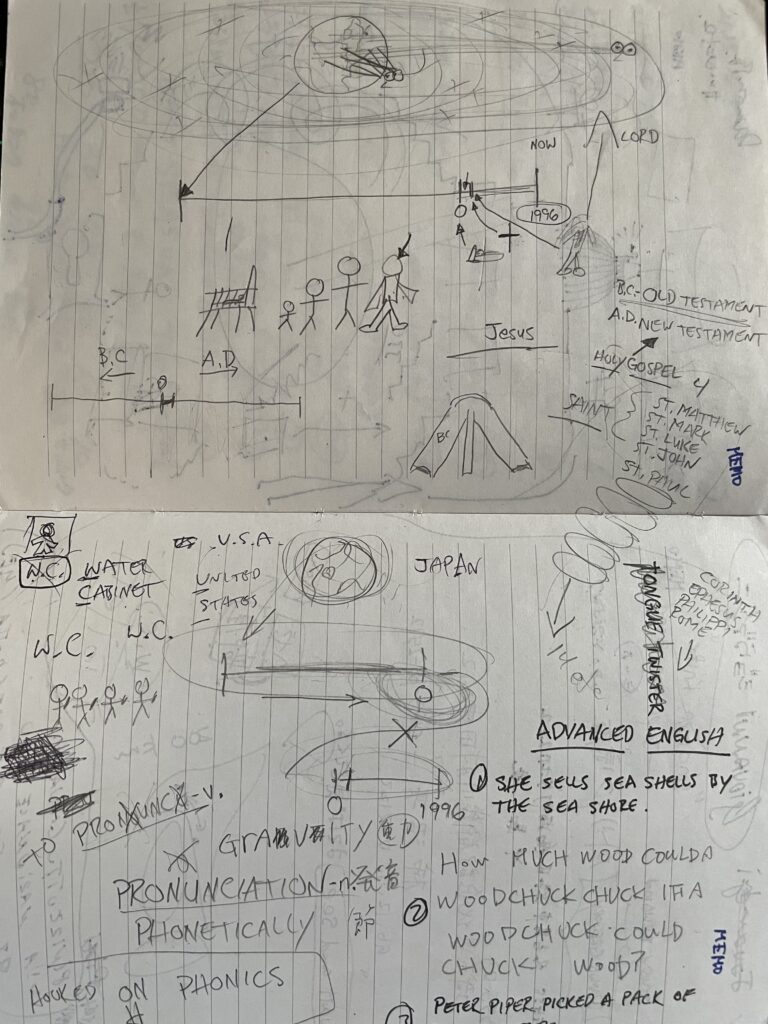 NOW
LORD
0
1996
B.C.-OLD TESTAMENT
A.D. NEW TESTAMENT
Jesus
HOLY GOSPEL 4
SAINT
ST. MATTHEW
ST. MARK
ST. LUKE
ST. JOHN
ST. PAUL
B.C
A.D
0
BC
MEMO
W.C. WATER
CABINET
U.S.A.
UNITED
STATES
JAPAN
W.C. W.C.
TONGUE TWISTER
CORINTH
EPHESUS
PHILIPPI
ROME
0
0
1996
ADVANCED ENGLISH
① SHE SELLS SEA SHELLS BY
THE SEA SHORE.
TO PRONUNCE-V.
GRAVITY
PRONUNCIATION-n.発音
PHONETICALLY 節
HOOKED ON PHONICS
② HOW MUCH WOOD COULD A
WOODCHUCK CHUCK IF A
WOODCHUCK COULD
CHUCK WOOD?
MEMO
③ PETER PIPER PICKED A PACK OF